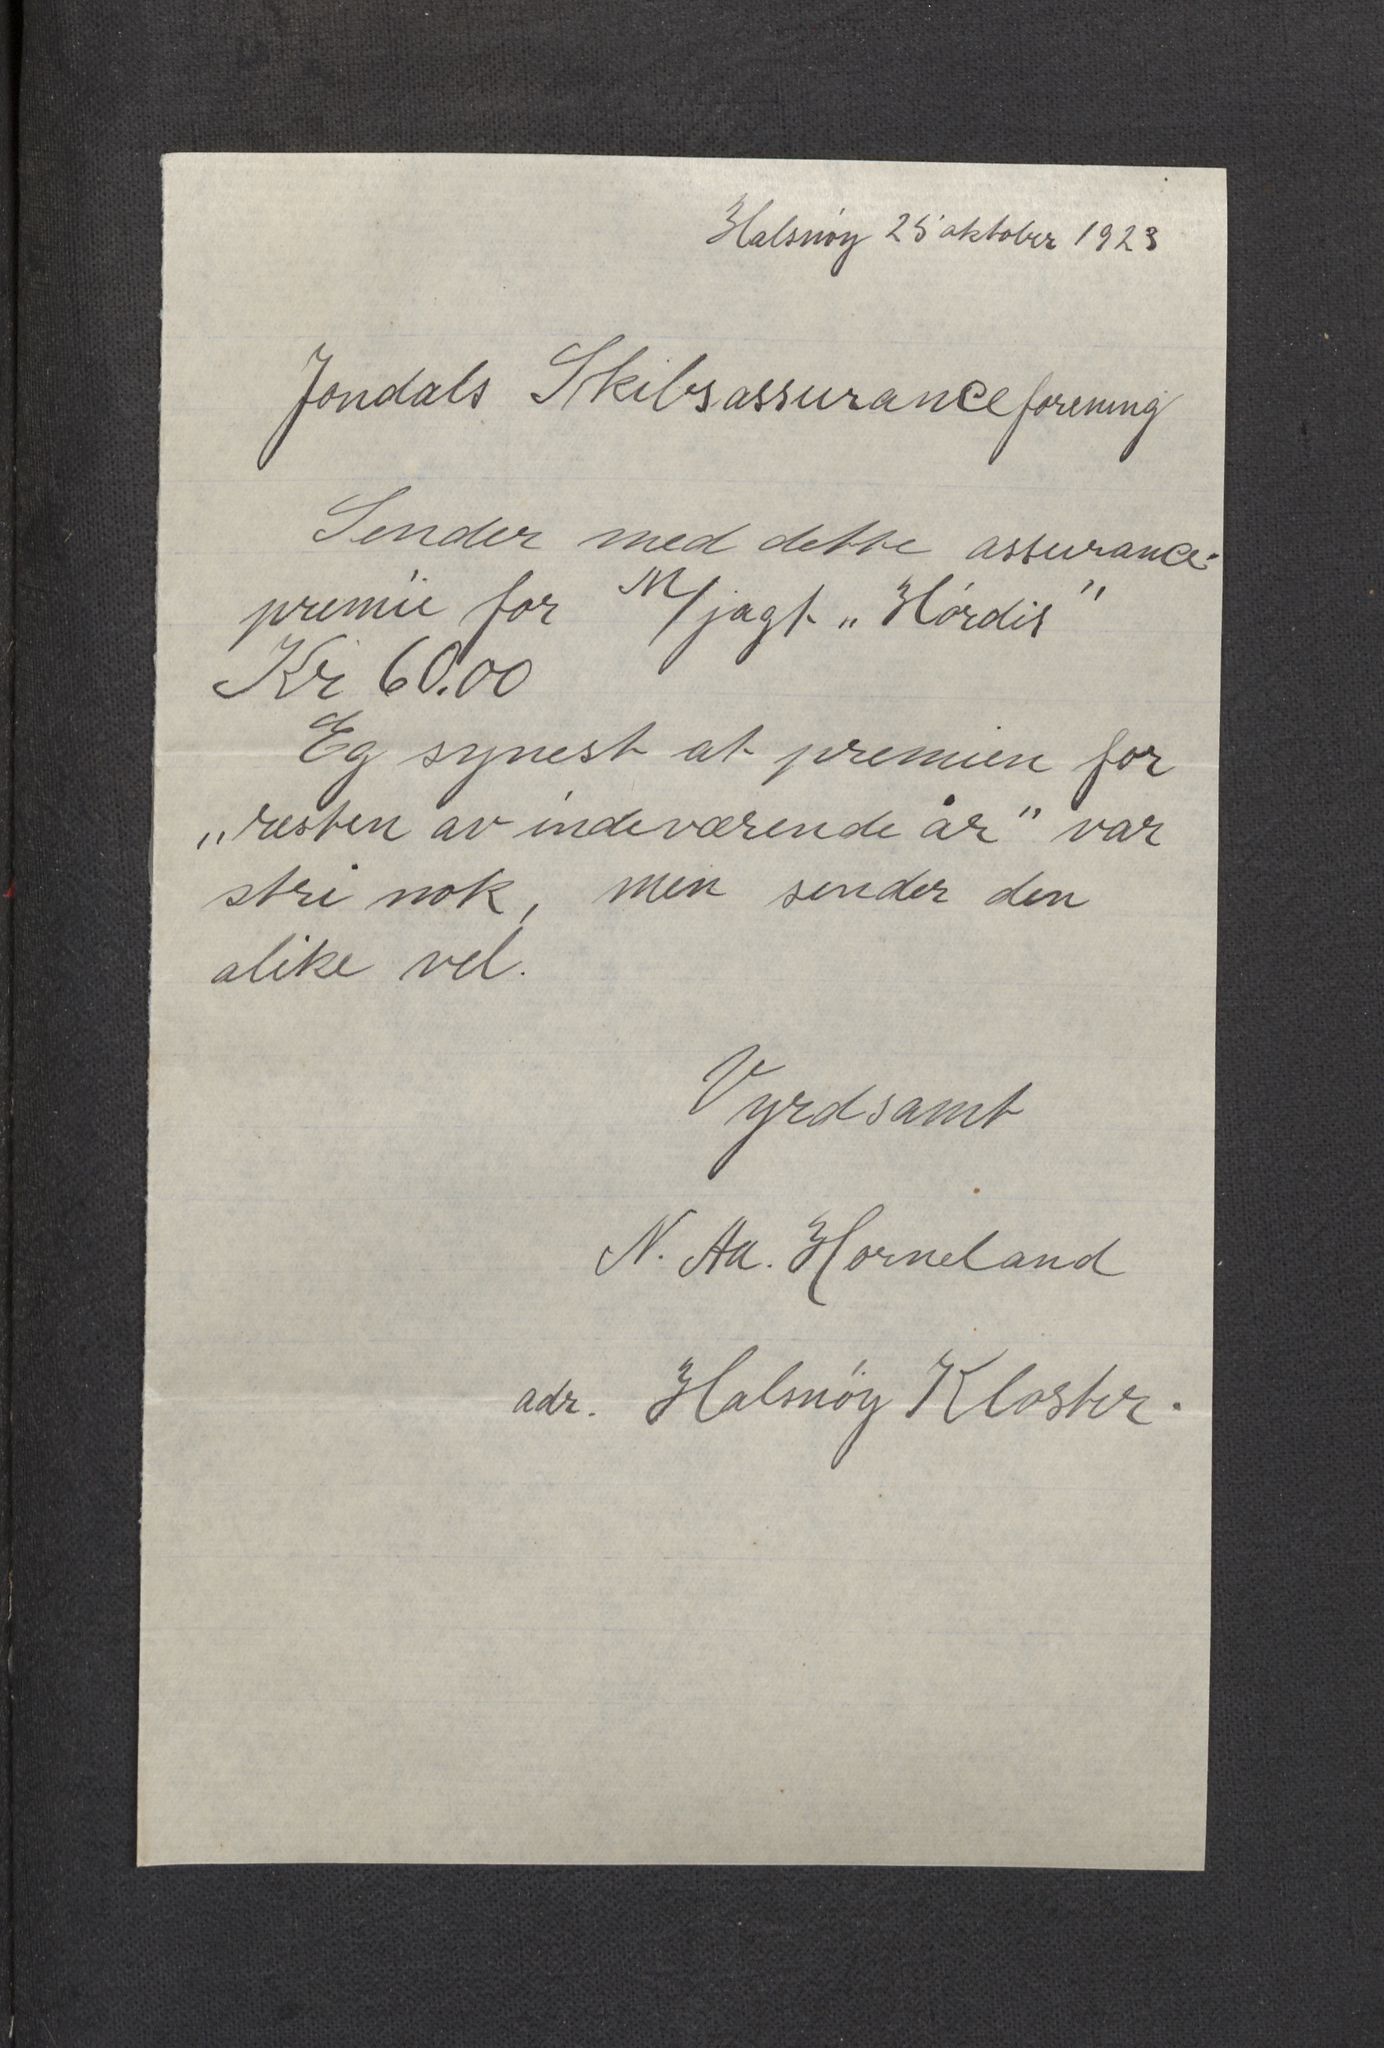 Halsnöy 25 oktober 1923
Jondals Skibsassuranceforening
Sender med dette assurance-
premie for M/jagt „Hördis"
Kr 60.00
Eg synest at premien for
„resten av indeværende år" var
stri nok, men sender den
alike vel.
Vyrdsamt
N. Aa. Horneland
adr. Halsnöy Kloster.